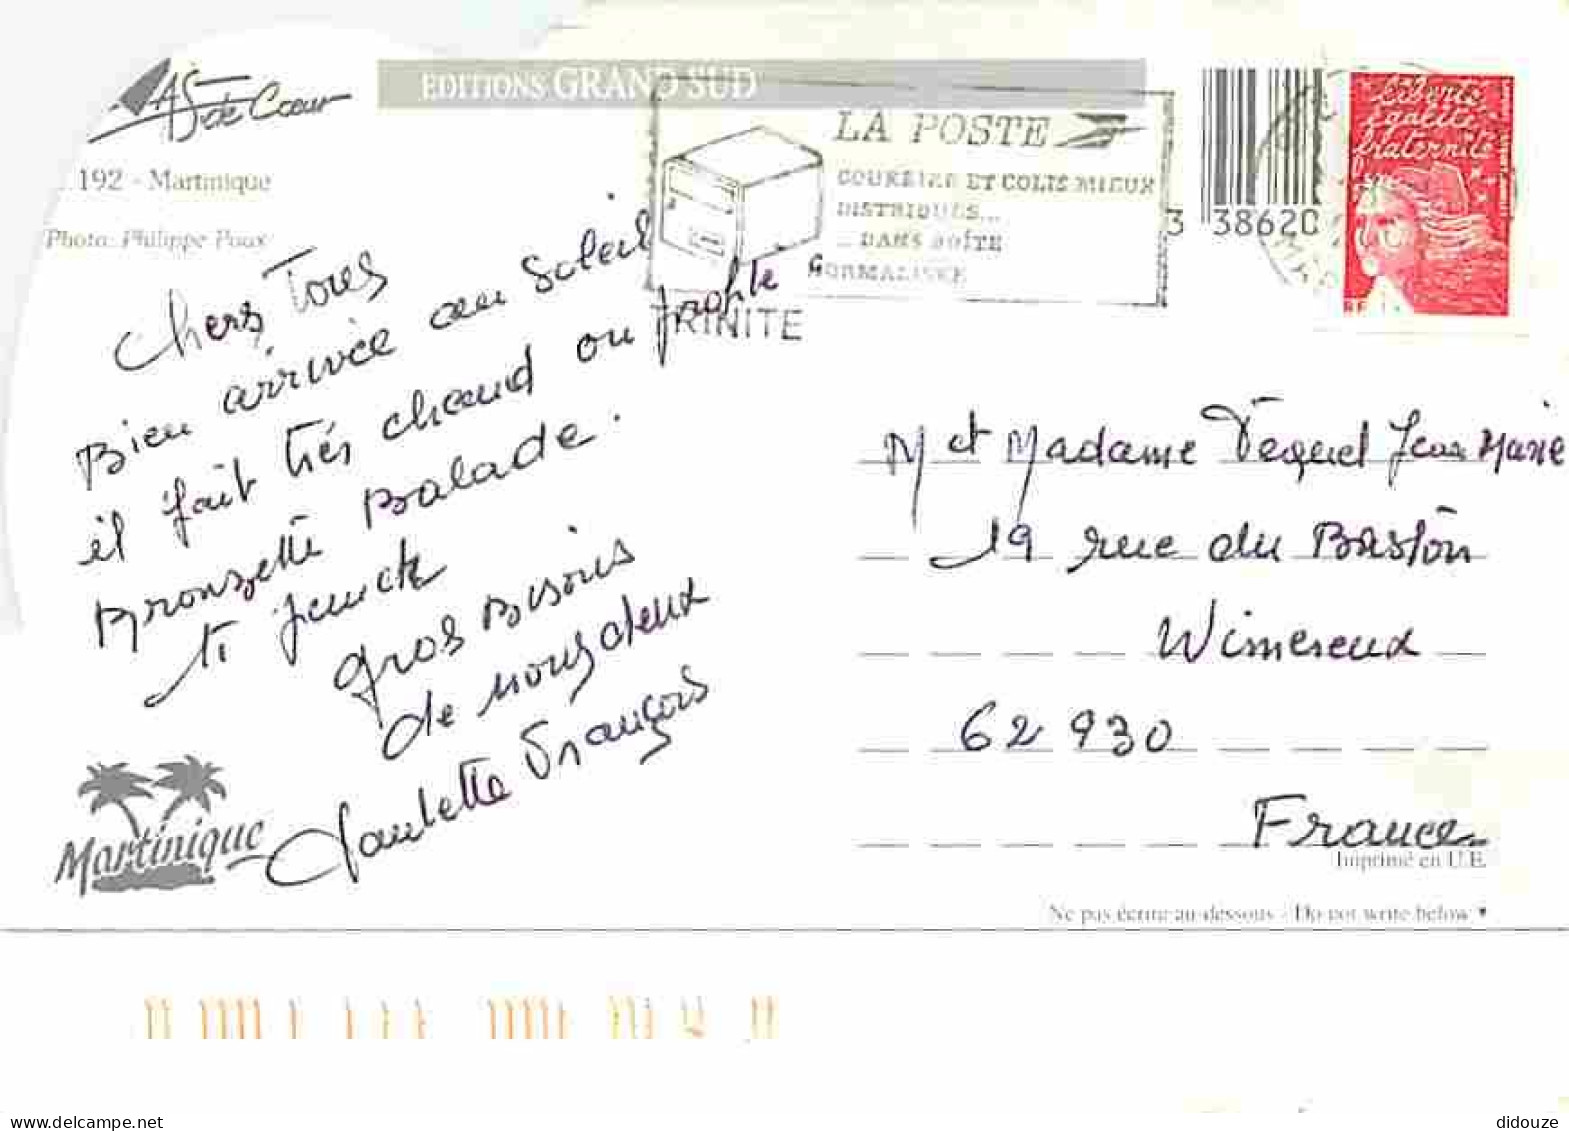 As de Coeur
EDITIONS GRAND SUD
192 - Martinique
Photo: Philippe Poux
LA POSTE
COURRIER ET COLIS MIEUX
DISTRIBUES...
... DANS BOÎTE
NORMALISEE
TRINITE
3 38620
Liberté
égalité
fraternité
RF
Chers Tous
Bien arrivée au Soleil
il fait très chaud on profite
Bronzette Balade.
ti
Gros Bisous
de nous deux
Paulette François
M et Madame Jean Marie
19 rue du Baston
Wimereux
62 930
France
Imprimé en U.E.
Martinique
Ne pas écrire au-dessous - Do not write below
delcampe.net
didouze